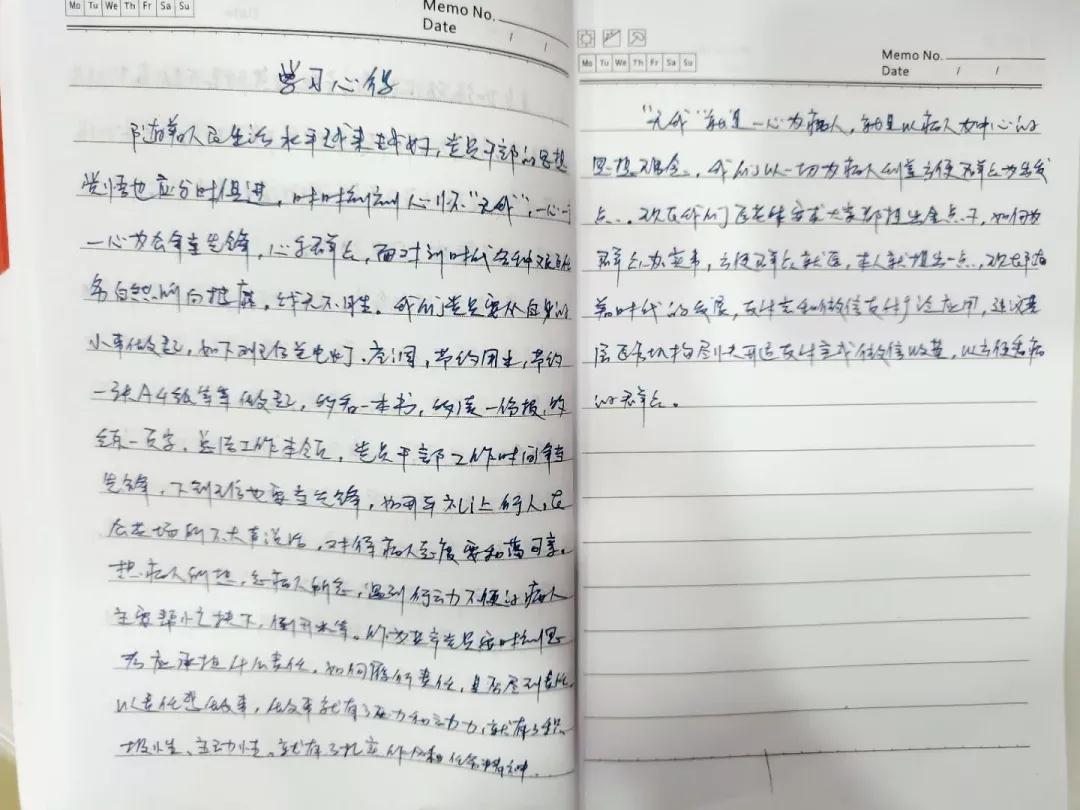 Mo Tu We Th Fr Sa Su
Memo No.
Date / /
学习心得
随着人民生活水平越来越好，党员干部的思想
觉悟也应与时俱进，时时刻刻心怀“无我”，一心一
一心为公争当先锋，心系群众，面对新时代各种
务自然所向披靡，战无不胜。我们党员要从自身的
小事做起，如下班后关电灯、空调，节约用水，节约
一张A4纸等等做起，多看一本书，多读一份报，多
练一页字，总结工作本领，党员干部工作时间争当
先锋，下班后也要当先锋，如开车礼让行人，在
公共场所不大声说话，对待病人态度要和蔼可亲。
想病人所想，急病人所急，遇到行动不便的病人
主要帮忙扶下，倒开水等。作为共产党员应时刻思
考应承担什么责任，如何履行责任，是否尽到责任，
以责任感做事，做事就有了压力和动力，就有了积
极性、主动性，就有了扎实作风和任劳精神。
Mo Tu We Th Fr Sa Su
Memo No.
Date / /
“无我”就是一心为病人，就是以病人为中心的
思想观念，我们以一切为病人创造方便群众为出发
点，现在我们医老体要求大家都提出金点子，如何为
群众办实事，方便群众就医，本人就提出一点，现在随
着时代的发展，支付宝和微信支付广泛应用，建议基
层医疗机构尽快开通支付宝或微信收费，以方便看病
的群众。